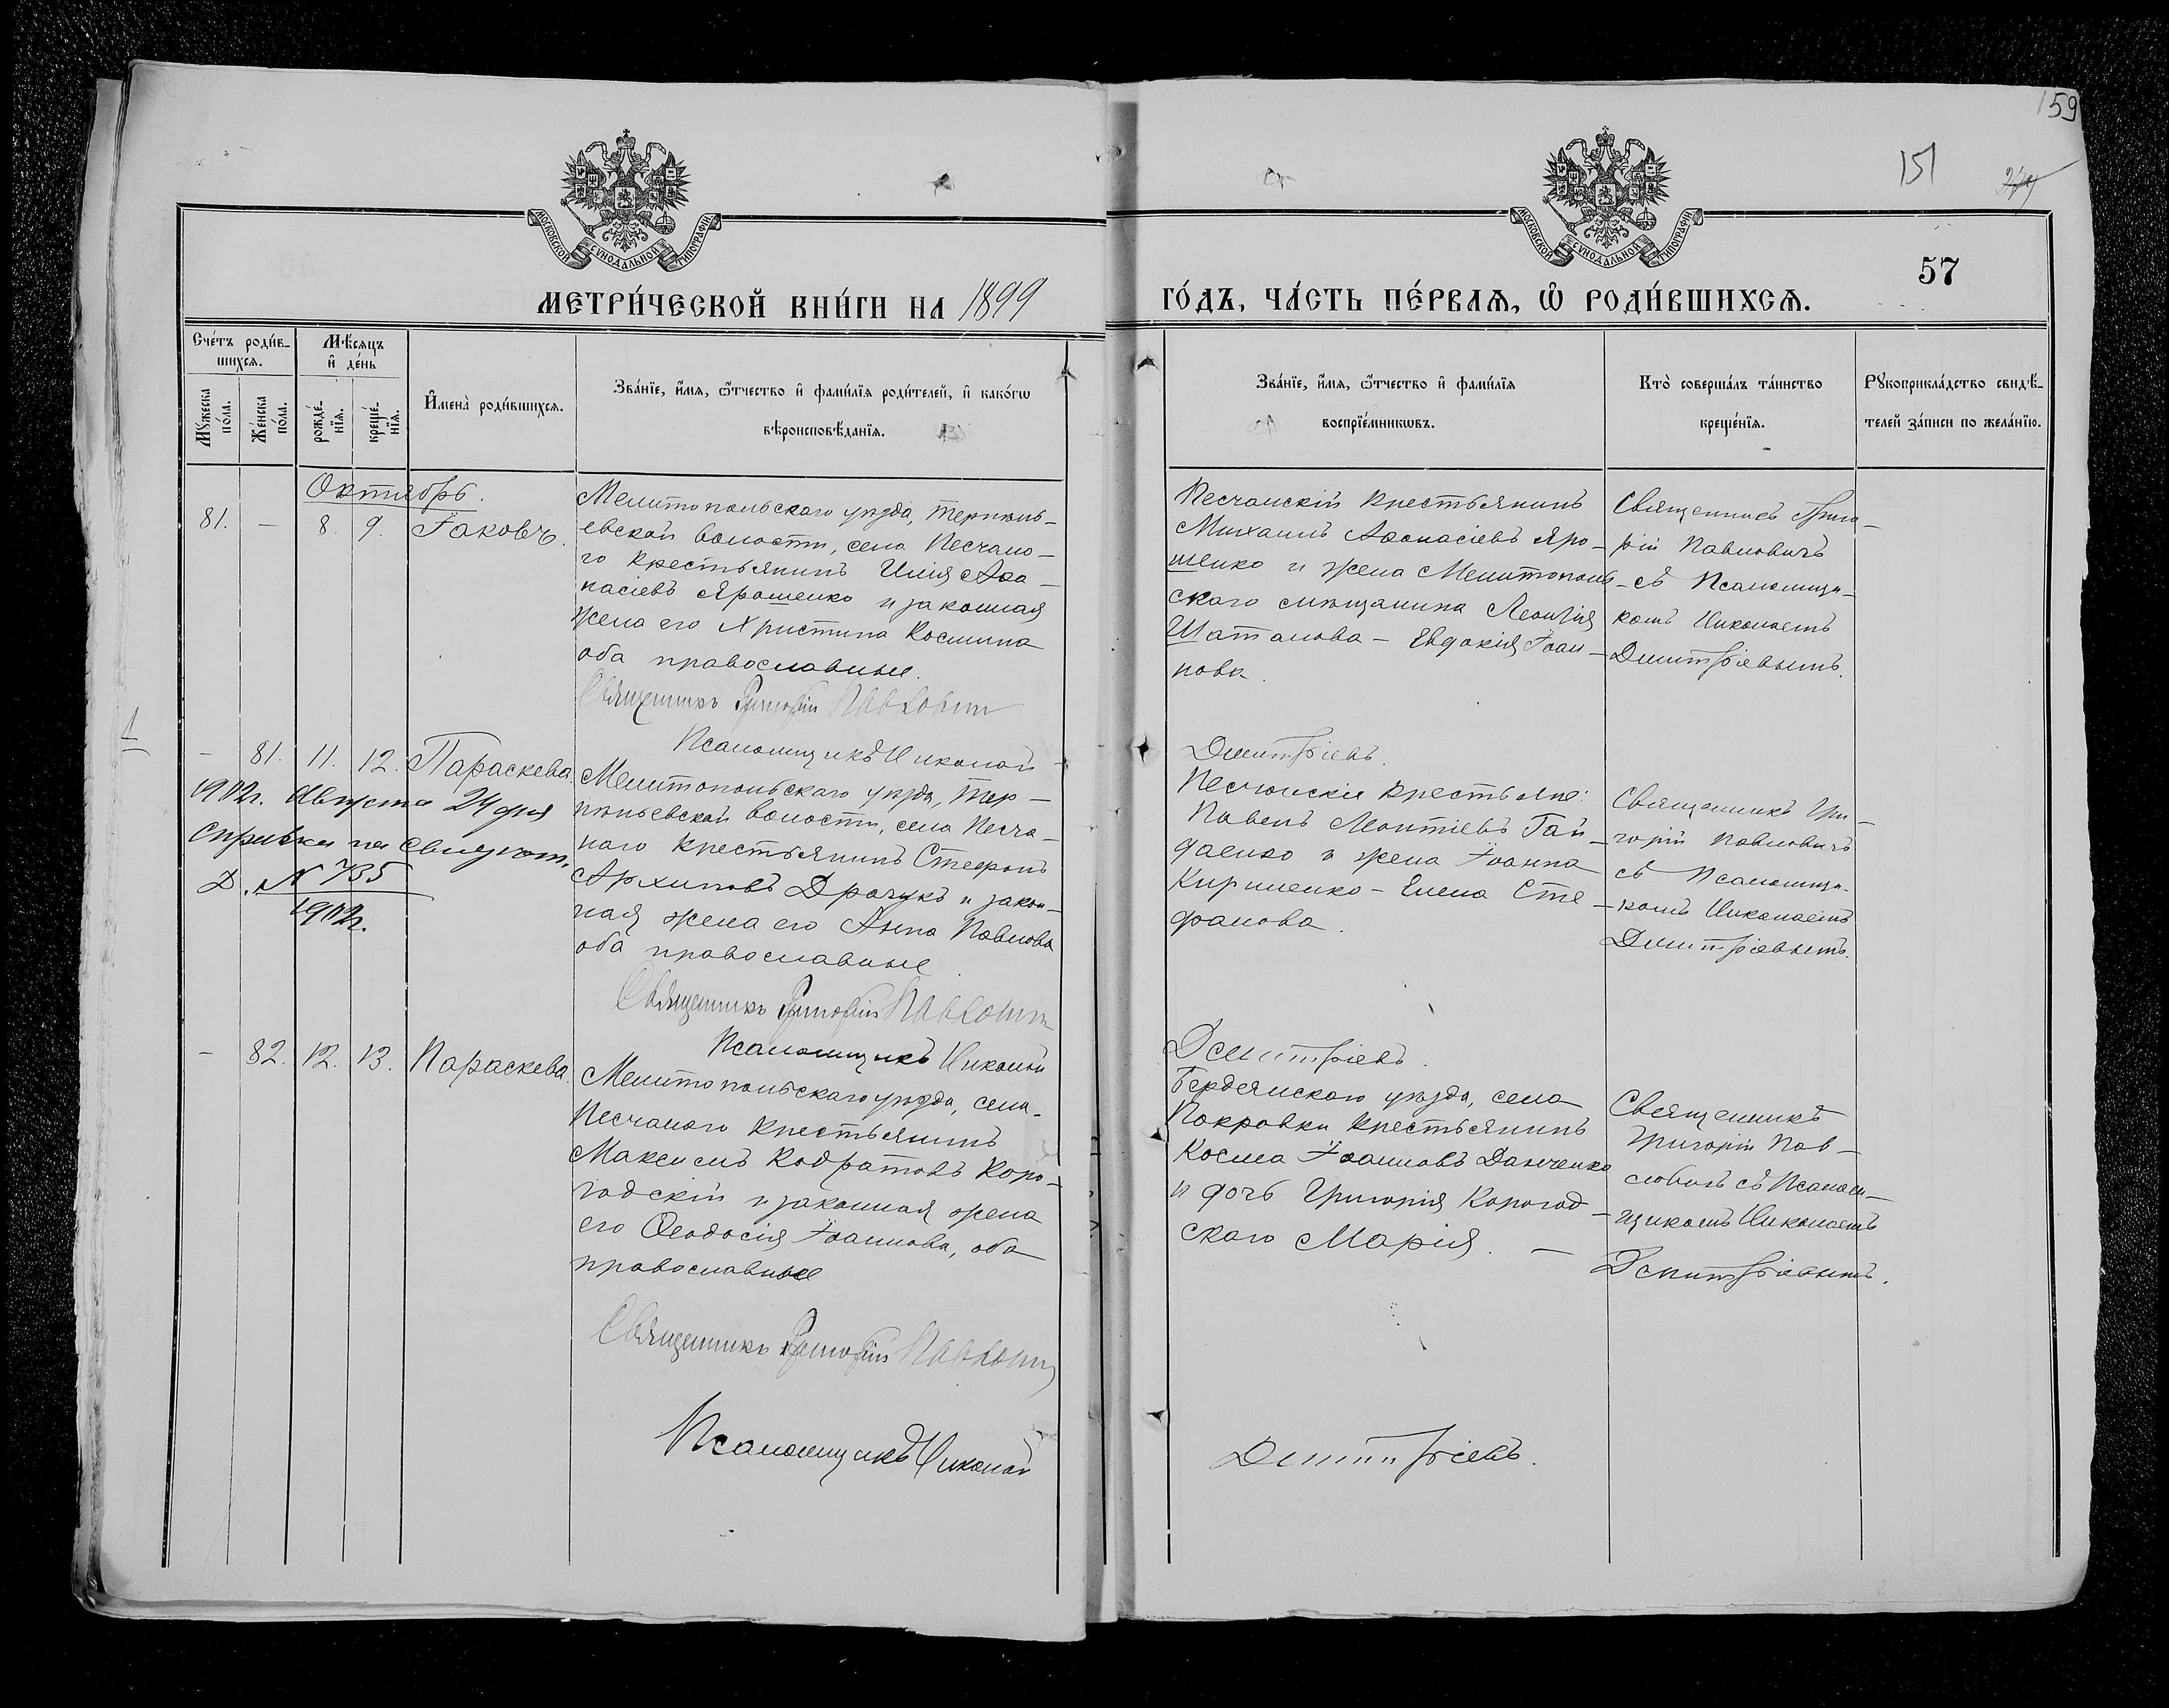 159
151
МОСКОВСКОЙ СУНОДАЛЬНОЙ ТИПОГРАФІИ
МОСКОВСКОЙ СУНОДАЛЬНОЙ ТИПОГРАФІИ
57
МЕТРИ́ЧЕСКОЙ КНИ́ГИ НА 1899
ГО́ДЪ, ЧА́СТЬ ПЕ́РВАѦ, Ѡ҆ РОДИ́ВШИХСѦ.
Сче́тъ роди́в-
шихсѧ.
Мѣ́сяцъ
и҆ де́нь
Мꙋ́жеска
по́ла.
Же́нска
по́ла.
рожде́-
нїѧ.
креще́-
нїѧ.
И҆мена̀ роди́вшихсѧ.
Зва́нїе, и҆́мѧ, ѻ҆́тчество и҆ фами́лїѧ роди́телей, и҆ како́гѡ
вѣроисповѣ́данїѧ.
Зва́нїе, и҆́мѧ, ѻ҆́тчество и҆ фами́лїѧ
воспрїе́мникѡвъ.
Кто̀ соверша́лъ та́инство
креще́нїѧ.
Рꙋкоприкла́дство свидѣ́-
телей за́писи по жела́нїю.
Октябрь.
81. — 8. 9. Іаковъ.
Мелитопольскаго уѣзда, Терпѣнь-
евской волости, села Песчана-
го крестьянинъ Илія Аѳа-
насіевъ Ярошенко и законная
жена его Христина Космина
оба православные.
Священникъ Григорій Павловичъ
Псаломщикъ Николай
Песчанскій крестьянинъ
Михаилъ Аѳанасіевъ Яро-
шенко и жена Мелитополь-
скаго мѣщанина Леонтія
Шаталова - Евдокія Іоан-
нова.
Димитріевъ.
Священникъ Григо-
рій Павловичъ
съ Псаломщи-
комъ Николаемъ
Димитріевымъ.
1
— 81. 11. 12. Параскева.
1902г. Августа 24 дня
Справка на
Д. № 735
1902г.
Мелитопольскаго уѣзда, Тер-
пѣньевской волости, села Песча-
наго крестьянинъ Стефанъ
Архиповъ Драчукъ и закон-
ная жена его Анна Павлова
оба православные
Священникъ Григорій Павловичъ
Псаломщикъ Николай
Песчанскіе крестьяне:
Павелъ Леонтіевъ Гай-
даенко и жена Іоанна
Кириленко - Елена Сте-
фанова.
Димитріевъ.
Священникъ Гри-
горій Павловичъ
съ Псаломщи-
комъ Николаемъ
Димитріевымъ.
— 82. 12. 13. Параскева.
Мелитопольскаго уѣзда, села
Песчанаго крестьянинъ
Максимъ Кодратовъ Коро-
годскій и законная жена
его Ѳеодосія Іоаннова, оба
православные
Священникъ Григорій Павловичъ
Псаломщикъ Николай
Бердянскаго уѣзда, села
Покровки крестьянинъ
Косма Іоанновъ Данченко
и дочь Григорія Корогод-
скаго Марія. —
Димитріевъ.
Священникъ
Григорій Пав-
ловичъ съ Псалом-
щикомъ Николаемъ
Димитріевымъ.